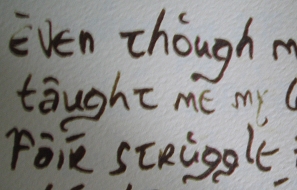 Even though
taught me my
Fair struggle